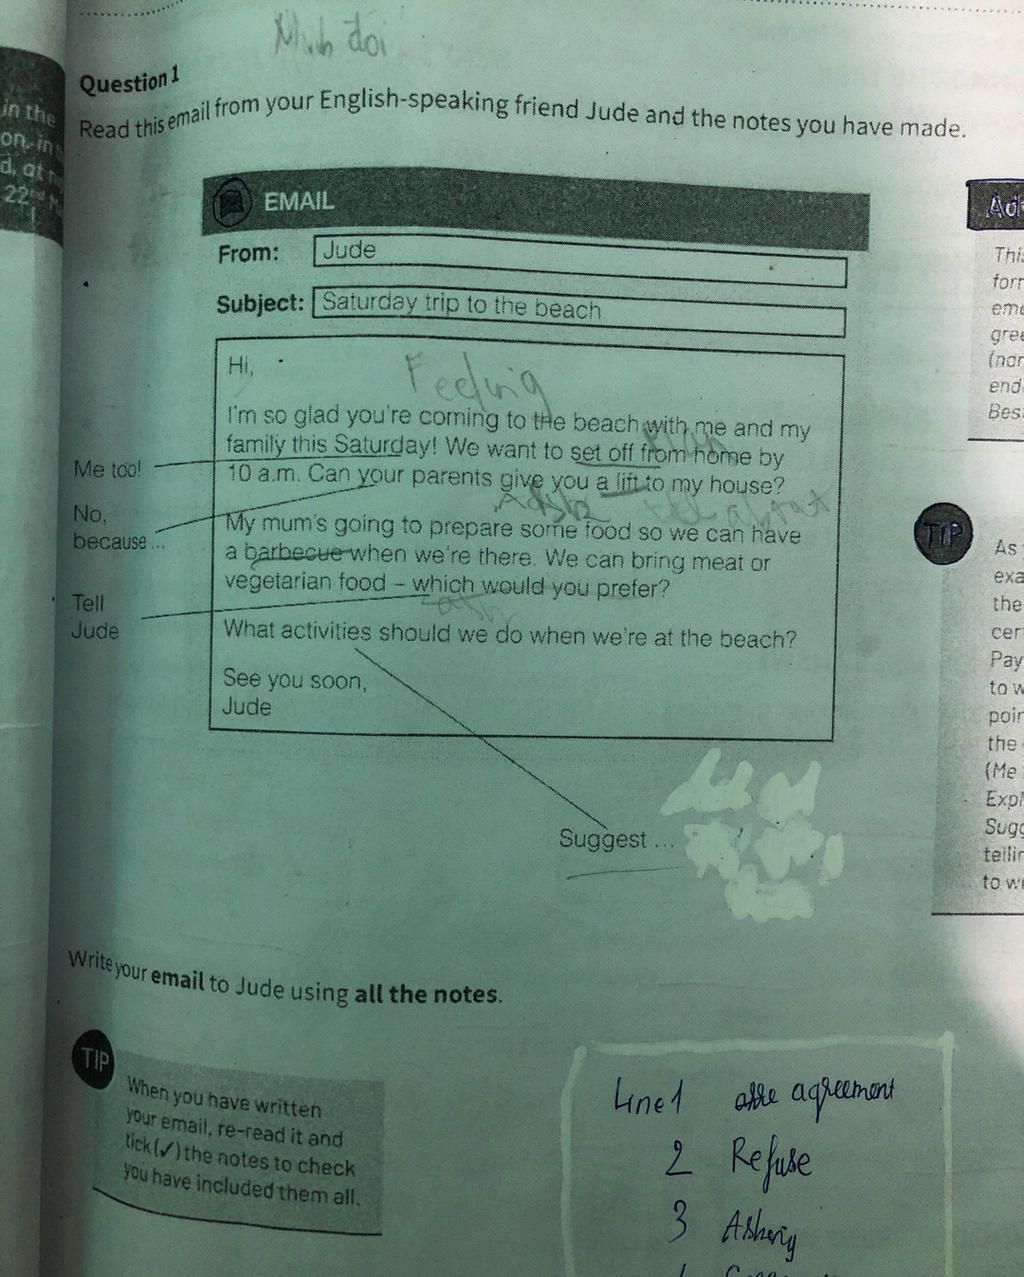 đoi
Question 1
Read this email from your English-speaking friend Jude and the notes you have made.
in the
on, in
d, at
22
EMAIL
From: Jude
Subject: Saturday trip to the beach
Hi,
Feeling
I'm so glad you're coming to the beach with me and my
family this Saturday! We want to set off from home by
10 a.m. Can your parents give you a lift to my house?
My mum's going to prepare some food so we can have
a barbecue when we're there. We can bring meat or
vegetarian food – which would you prefer?
What activities should we do when we're at the beach?
See you soon,
Jude
Me too!
No,
because ...
Tell
Jude
Suggest ...
Write your email to Jude using all the notes.
TIP
When you have written
your email, re-read it and
tick (✓) the notes to check
you have included them all.
Line 1 agreement
2 Refuse
3
Ad
Thi
for
ema
gree
(nor
end
Bes
TIP
As
exa
the
cer
Pay
to w
poir
the
(Me
Expl
Sugg
tellin
to wr